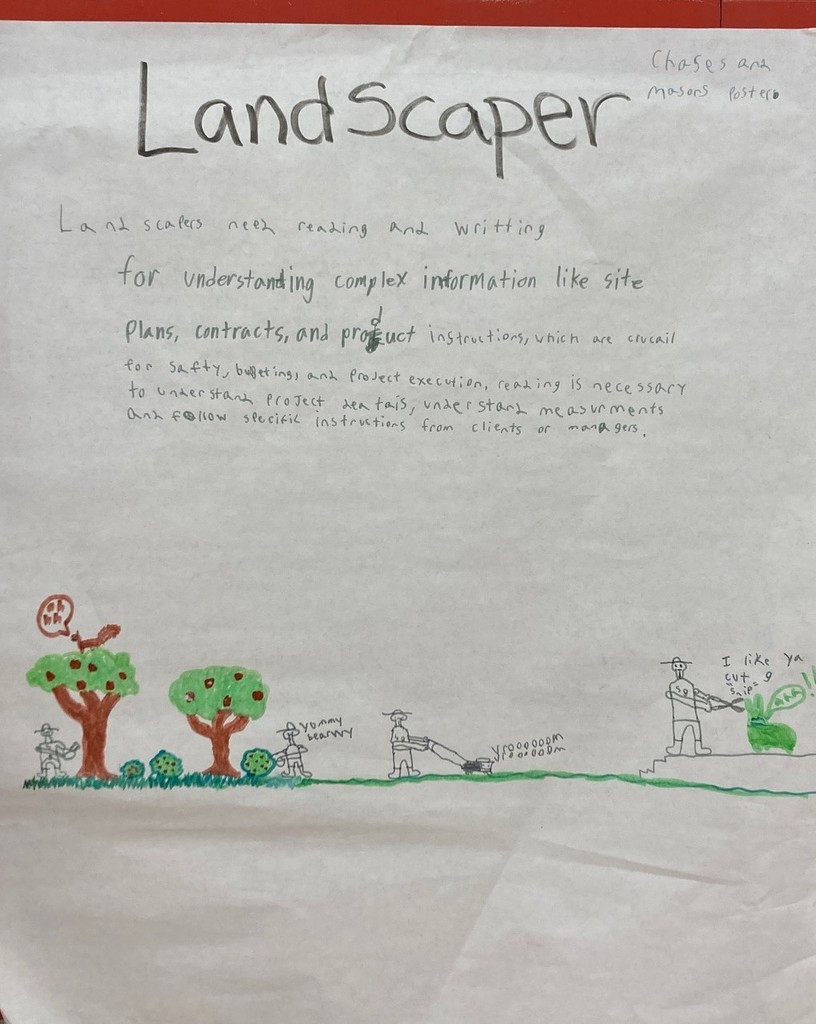 Chases and
masons Poster
LandScaper
Landscapers need reading and writting
for understanding complex information like site
plans, contracts, and product instructions, which are crucail
for safty, bugeting, and project execution, reading is necessary
to understand project deatais, understand measurments
and follow specific instructions from clients or managers.
oh
hh
yummy
I like ya
cut g
"snip"
ahh!!
vroooooom
vroooooom